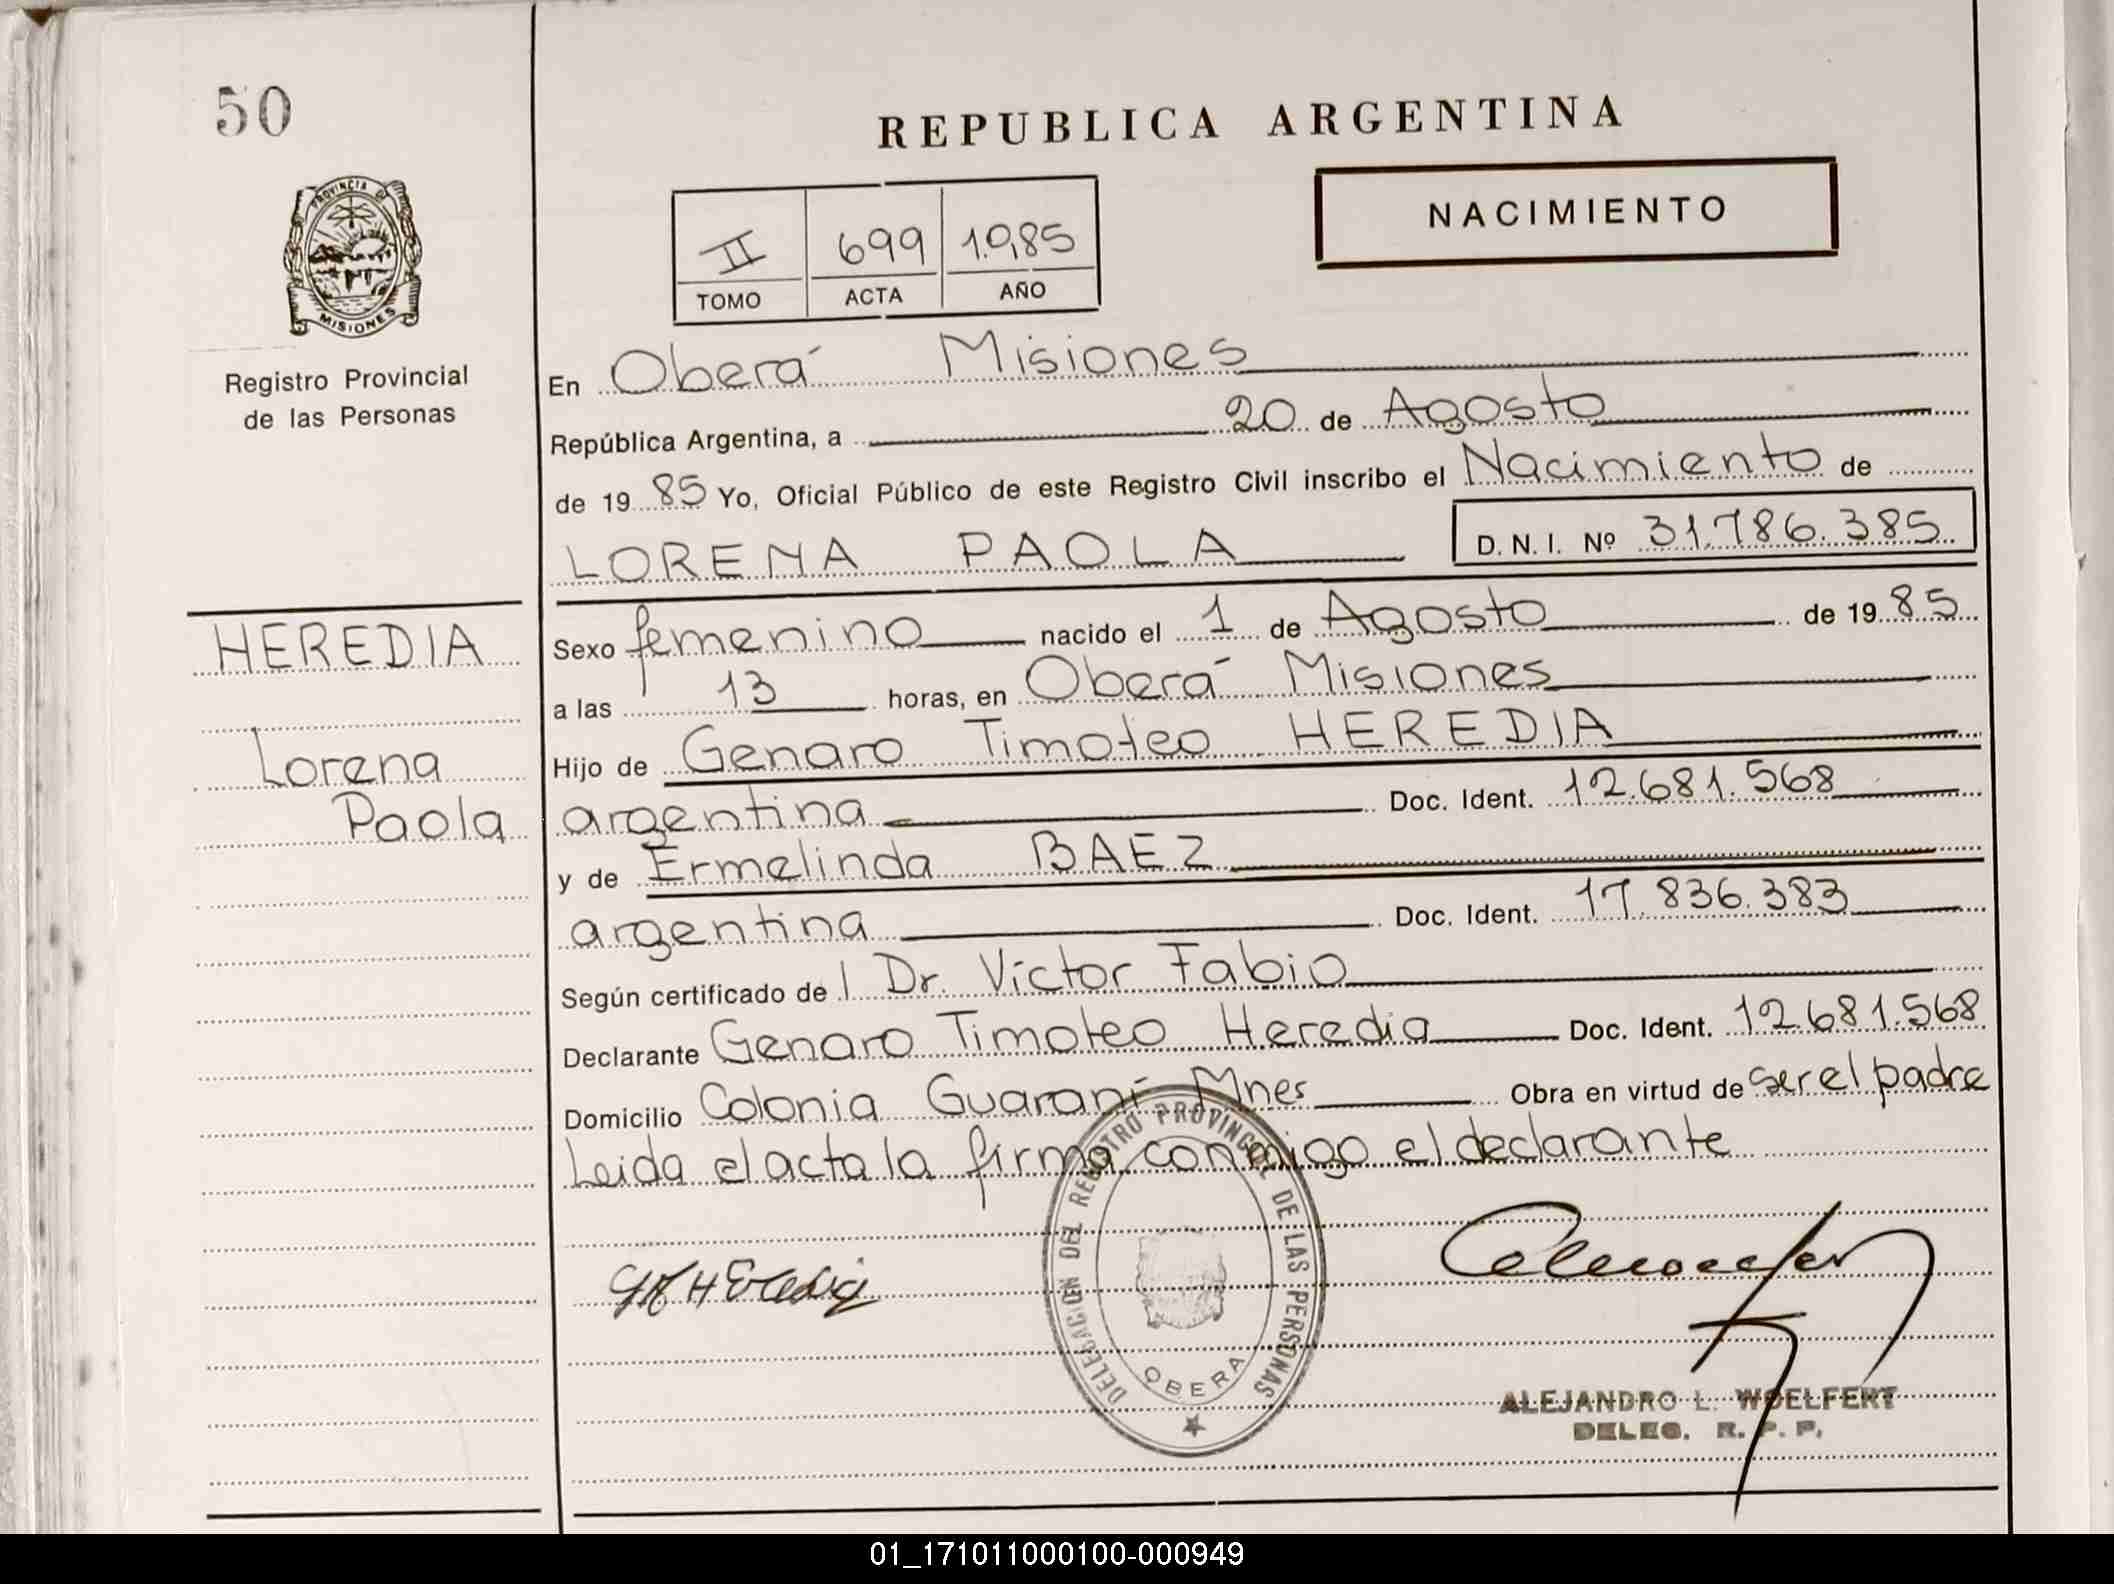 50
REPUBLICA ARGENTINA
PROVINCIA DE
MISIONES
Registro Provincial
de las Personas
NACIMIENTO
II 699 1.985
TOMO ACTA AÑO
En Oberá Misiones
República Argentina, a 20 de Agosto
de 19 85 Yo, Oficial Público de este Registro Civil inscribo el Nacimiento de
LORENA PAOLA D. N. I. Nº 31.786.385
HEREDIA
Lorena
Paola
Sexo femenino nacido el 1 de Agosto de 19 85
a las 13 horas, en Oberá Misiones
Hijo de Genaro Timoteo HEREDIA
argentina Doc. Ident. 12.681.568
y de Ermelinda BAEZ
argentina Doc. Ident. 17.836.383
Según certificado de l Dr. Víctor Fabio
Declarante Genaro Timoteo Heredia Doc. Ident. 12.681.568
Domicilio Colonia Guaraní Mnes Obra en virtud de ser el padre
Leida el acta la firma conmigo el declarante
DELEGACION DEL REGISTRO PROVINCIAL DE LAS PERSONAS
OBERA
ALEJANDRO L. WOELFERT
DELEG. R. P. P.
01_171011000100-000949